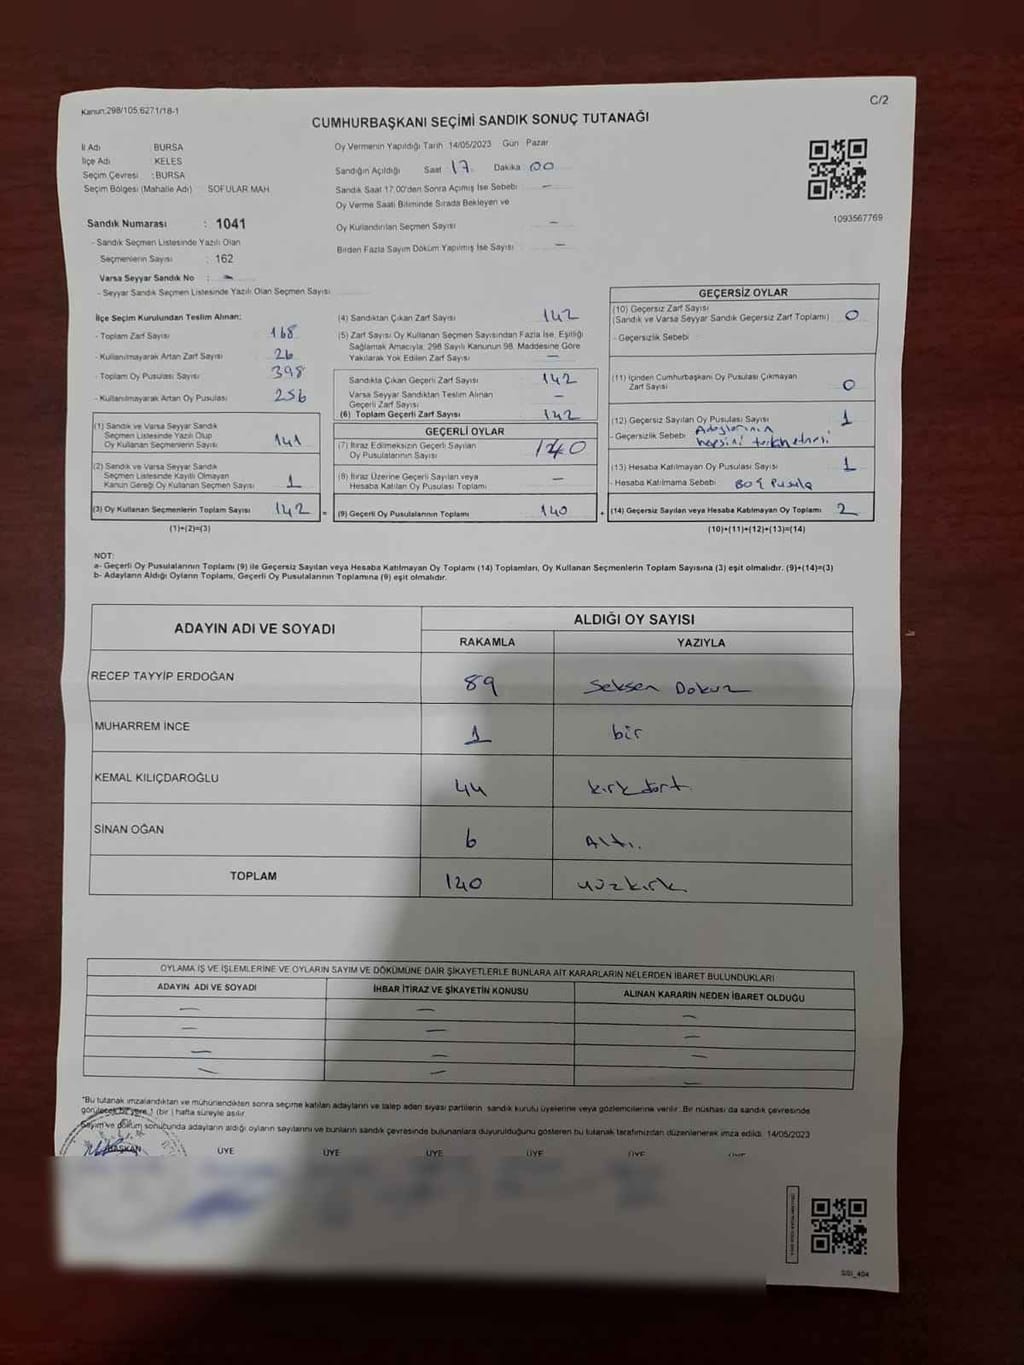 Kanun:298/105,6271/18-1
C/2
CUMHURBAŞKANI SEÇİMİ SANDIK SONUÇ TUTANAĞI
İl Adı BURSA
İlçe Adı KELES
Seçim Çevresi : BURSA
Seçim Bölgesi (Mahalle Adı) SOFULAR MAH
Sandık Numarası : 1041
- Sandık Seçmen Listesinde Yazılı Olan
Seçmenlerin Sayısı : 162
Varsa Seyyar Sandık No : -
- Seyyar Sandık Seçmen Listesinde Yazılı Olan Seçmen Sayısı
Oy Vermenin Yapıldığı Tarih 14/05/2023 Gün Pazar
Sandığın Açıldığı Saat 17 Dakika 00
Sandık Saat 17.00'den Sonra Açılmış İse Sebebi -
Oy Verme Saati Bitiminde Sırada Bekleyen ve
Oy Kullandırılan Seçmen Sayısı -
Birden Fazla Sayım Döküm Yapılmış İse Sayısı -
1093567769
İlçe Seçim Kurulundan Teslim Alınan:
- Toplam Zarf Sayısı 168
- Kullanılmayarak Artan Zarf Sayısı 26
- Toplam Oy Pusulası Sayısı 398
- Kullanılmayarak Artan Oy Pusulası 256
(1) Sandık ve Varsa Seyyar Sandık
Seçmen Listesinde Yazılı Olup
Oy Kullanan Seçmenlerin Sayısı 141
(2) Sandık ve Varsa Seyyar Sandık
Seçmen Listesinde Kayıtlı Olmayan
Kanun Gereği Oy Kullanan Seçmen Sayısı 1
(3) Oy Kullanan Seçmenlerin Toplam Sayısı 142
(1)+(2)=(3)
(4) Sandıktan Çıkan Zarf Sayısı 142
(5) Zarf Sayısı Oy Kullanan Seçmen Sayısından Fazla İse, Eşitliği
Sağlamak Amacıyla, 298 Sayılı Kanunun 98. Maddesine Göre
Yakılarak Yok Edilen Zarf Sayısı -
Sandıkta Çıkan Geçerli Zarf Sayısı 142
Varsa Seyyar Sandıktan Teslim Alınan
Geçerli Zarf Sayısı -
(6) Toplam Geçerli Zarf Sayısı 142
GEÇERLİ OYLAR
(7) İtiraz Edilmeksizin Geçerli Sayılan
Oy Pusulalarının Sayısı 140
(8) İtiraz Üzerine Geçerli Sayılan veya
Hesaba Katılan Oy Pusulası Toplamı -
= (9) Geçerli Oy Pusulalarının Toplamı 140
GEÇERSİZ OYLAR
(10) Geçersiz Zarf Sayısı
(Sandık ve Varsa Seyyar Sandık Geçersiz Zarf Toplamı) 0
- Geçersizlik Sebebi
(11) İçinden Cumhurbaşkanı Oy Pusulası Çıkmayan
Zarf Sayısı 0
(12) Geçersiz Sayılan Oy Pusulası Sayısı 1
- Geçersizlik Sebebi
hepsini
(13) Hesaba Katılmayan Oy Pusulası Sayısı 1
- Hesaba Katılmama Sebebi Boş Pusula
+ (14) Geçersiz Sayılan veya Hesaba Katılmayan Oy Toplamı 2
(10)+(11)+(12)+(13)=(14)
NOT:
a- Geçerli Oy Pusulalarının Toplamı (9) ile Geçersiz Sayılan veya Hesaba Katılmayan Oy Toplamı (14) Toplamları, Oy Kullanan Seçmenlerin Toplam Sayısına (3) eşit olmalıdır. (9)+(14)=(3)
b- Adayların Aldığı Oyların Toplamı, Geçerli Oy Pusulalarının Toplamına (9) eşit olmalıdır.
ADAYIN ADI VE SOYADI
ALDIĞI OY SAYISI
RAKAMLA YAZIYLA
RECEP TAYYİP ERDOĞAN 89 Seksen Dokuz
MUHARREM İNCE 1 bir
KEMAL KILIÇDAROĞLU 44 kırkdört
SİNAN OĞAN 6 Altı.
TOPLAM 140 yüzkırk
OYLAMA İŞ VE İŞLEMLERİNE VE OYLARIN SAYIM VE DÖKÜMÜNE DAİR ŞİKAYETLERLE BUNLARA AİT KARARLARIN NELERDEN İBARET BULUNDUKLARI
ADAYIN ADI VE SOYADI İHBAR İTİRAZ VE ŞİKAYETİN KONUSU ALINAN KARARIN NEDEN İBARET OLDUĞU
- - -
- - -
- - -
- - -
"Bu tutanak imzalandıktan ve mühürlendikten sonra seçime katılan adayların ve talep eden siyasi partilerin sandık kurulu üyelerine veya gözlemcilerine verilir. Bir nüshası da sandık çevresinde
görülecek bir yere 1 (bir) hafta süreyle asılır.
Sayım ve döküm sonucunda adayların aldığı oyların sayılarını ve bunların sandık çevresinde bulunanlara duyurulduğunu gösteren bu tutanak tarafımızdan düzenlenerek imza edildi. 14/05/2023
BAŞKAN ÜYE ÜYE ÜYE ÜYE ÜYE ÜYE
SSI_404